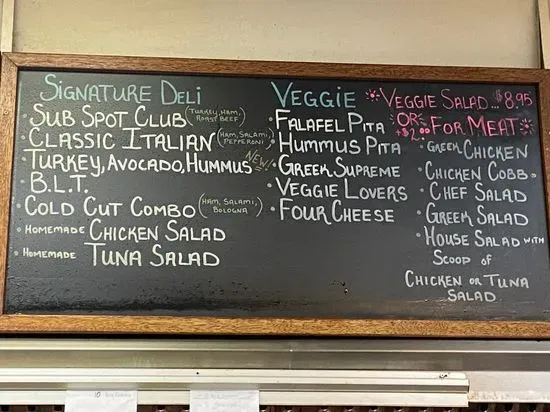 Signature Deli
• Sub Spot Club (Turkey, Ham, Roast Beef)
• Classic Italian (Ham, Salami, Pepperoni)
• Turkey, Avocado, Hummus New!
• B.L.T.
• Cold Cut Combo (Ham, Salami, Bologna)
• Homemade Chicken Salad
• Homemade Tuna Salad
Veggie
• Falafel Pita
• Hummus Pita
• Greek Supreme
• Veggie Lovers
• Four Cheese
Veggie Salad...$8.95
OR
+$2.00 For Meat
• Greek Chicken
• Chicken Cobb
• Chef Salad
• Greek Salad
• House Salad with
Scoop of
Chicken or Tuna
Salad